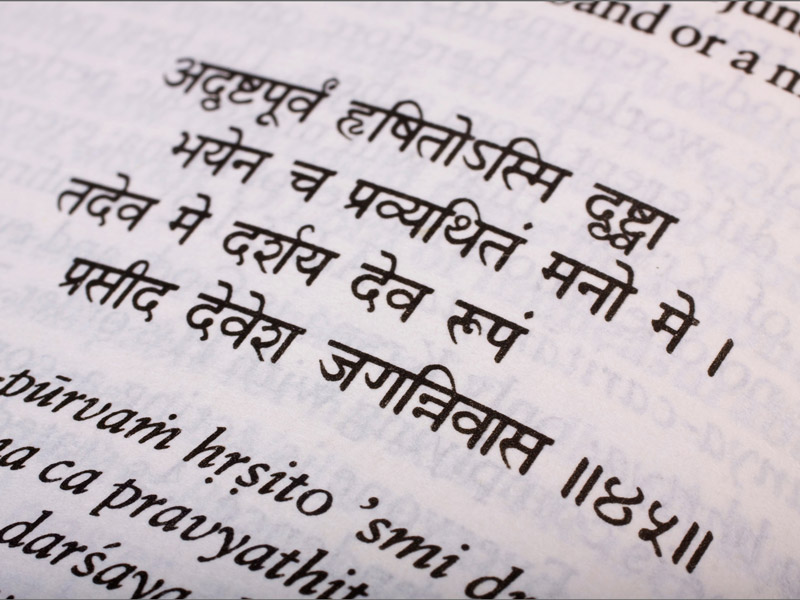 and or a m
अदृष्टपूर्वं हृषितोऽस्मि दृष्ट्वा
भयेन च प्रव्यथितं मनो मे ।
तदेव मे दर्शय देव रूपं
प्रसीद देवेश जगन्निवास ॥४५॥
-pūrvaṁ hṛṣito ’smi dṛ
na ca pravyathit
darśaya